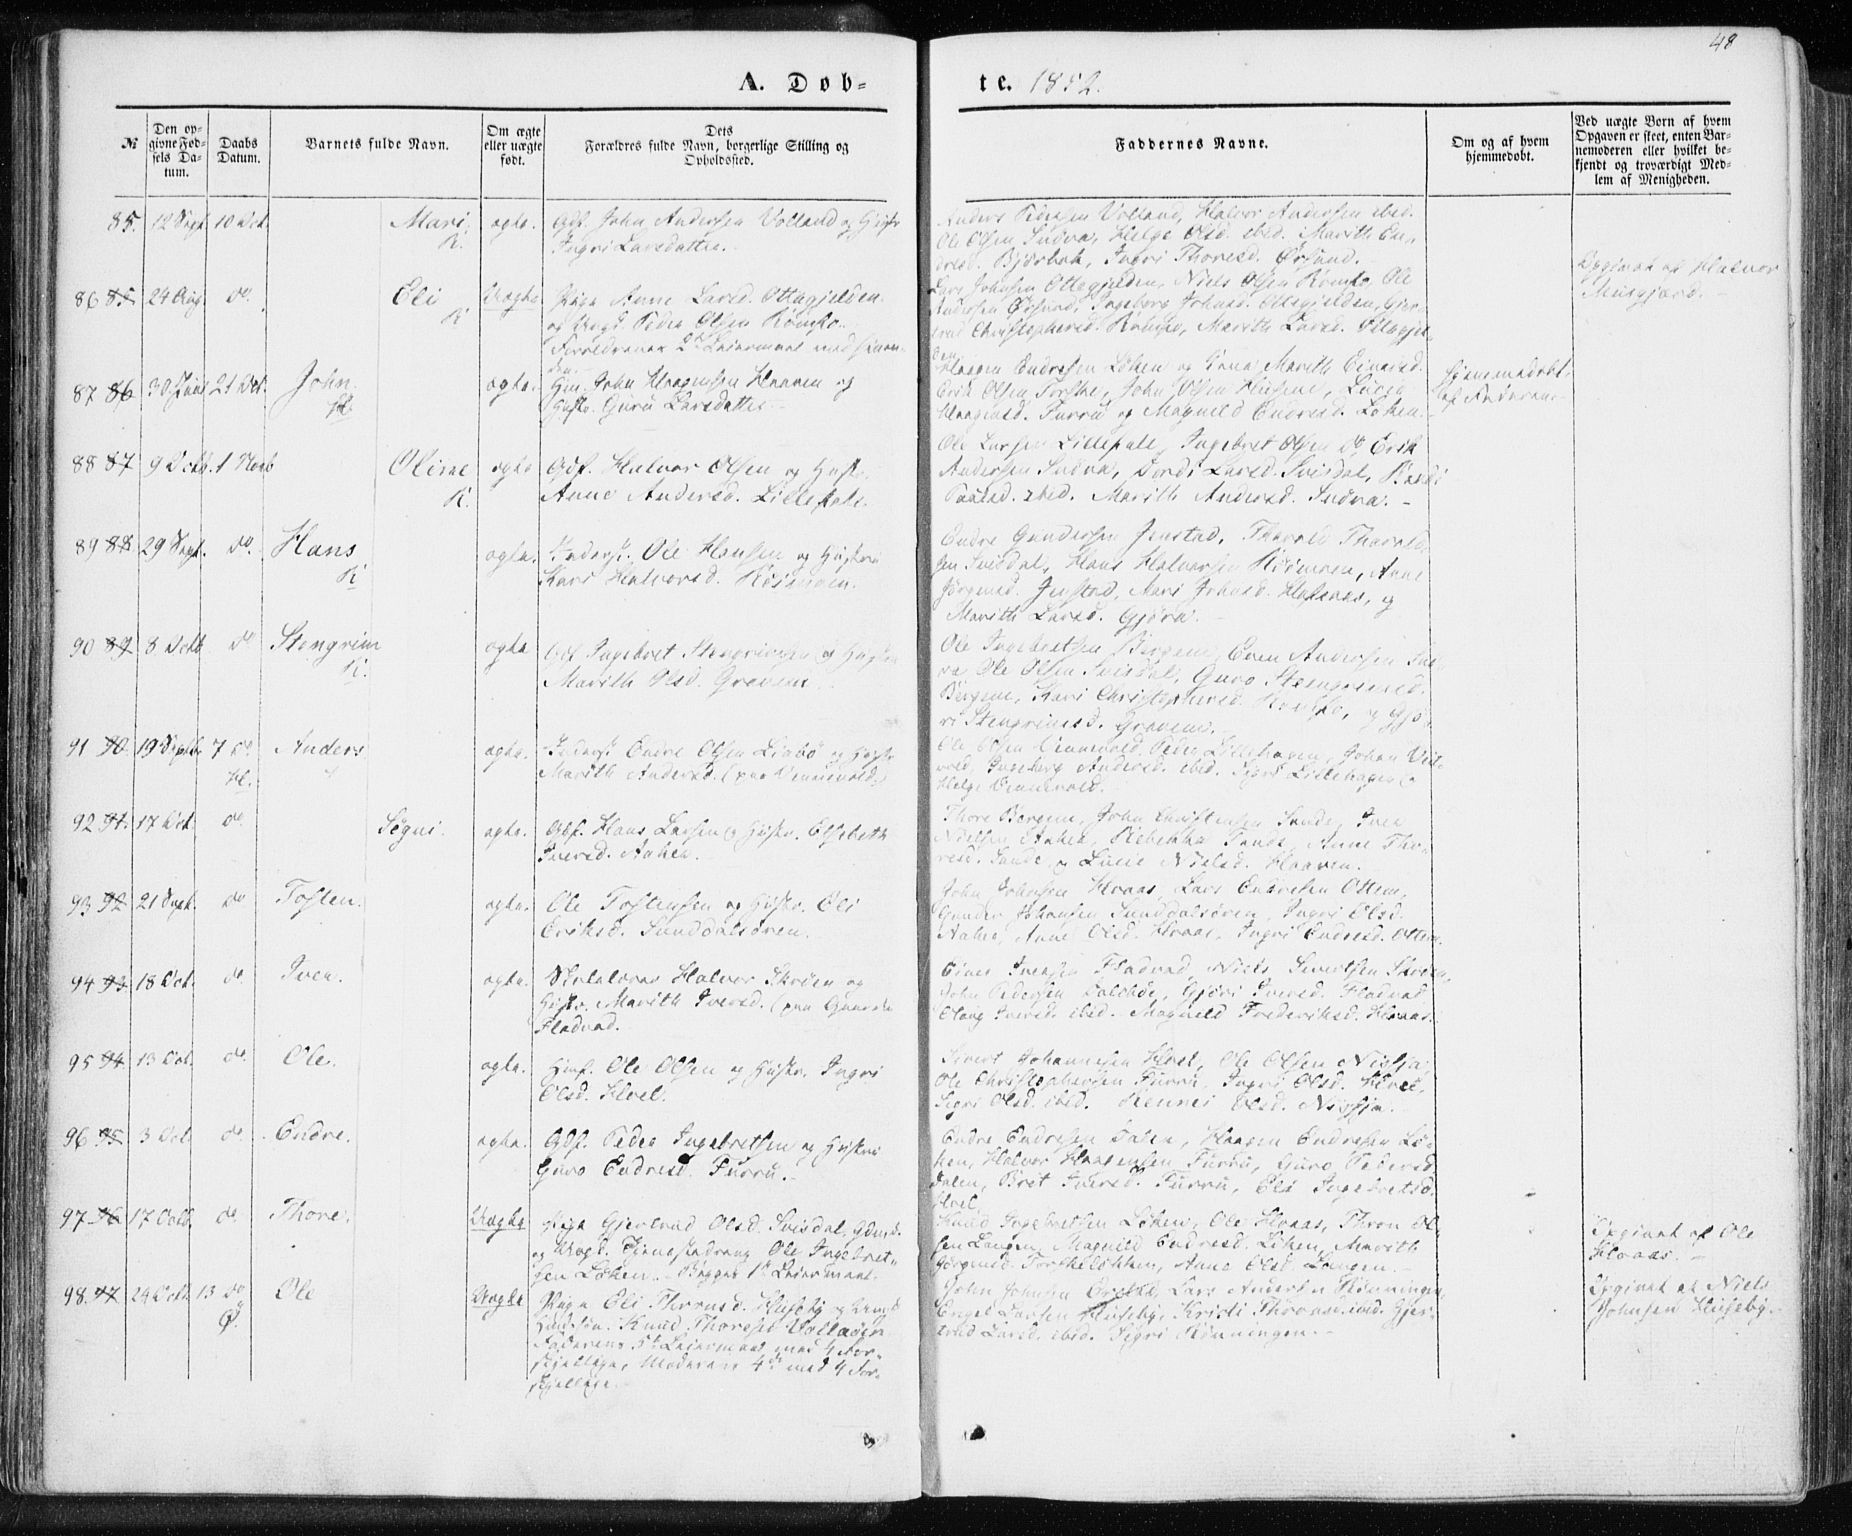 48
A. Døb-
te. 1852.
№
Den op-
givne Fød-
sels Da-
tum.
Daabs
Datum.
Barnets fulde Navn.
Om ægte
eller uægte
født.
Dets
Forældres fulde Navn, borgerlige Stilling og
Opholdssted.
Faddernes Navne.
Om og af hvem
hjemmedøbt.
Ved uægte Børn af hvem
Opgaven er skeet, enten Bar-
nemoderen eller hvilket be-
kjendt og troværdigt Med-
lem af Menigheden.
85. 12 Sept. 10 Oct. Mari, K. ægte. Gdf. John Andersen Volland og Hustr
Ingri Larsdatter.
Anders Pedersen Volland, Halvor Andersen ibid.
Ole Olsen Indva, Helge Olsd. ibid. Marith En-
dresd. Bjørbak, Ingri Thoresd. Ørsund.
86 85 24 Aug. do. Eli K Uægte Pige Anne Larsd. Ottegjelden
og Ungk. Peder Olsen Rømfo.
Forældrenes 2det Leiermaal med hinan-
den.
Lars Johnsen Ottegjelden, Niels Olsen Rømfo, Ole
Andersen Ørsund, Ingeborg Johnsd. Ottegjelden, Gjer-
trud Christophersd. Rømfo, Marith Larsd. Ottegjel-
den.
Opgivet af Halvor
Musgjerd.
87 86 30 21 Oct. John. ægte. Gm. John Haagensen Haaven og
Hustr. Guru Larsdatter.
Haagen Endresen Løken og Kone Marith Einarsd.
Erik Olsen Torske, John Olsen Husene, Lucie
Haagensd. Furru og Magnild Endresd. Løken.
Hjemmedøbt
af Faderen.
88 87 9 Octb. 1 Novb Oline K. ægte Gdf. Halvor Olsen og Hustr.
Anne Andersd. Lillefale.
Ole Larsen Lillefale, Ingebret Olsen do, Erik
Andersen Indva, Dordi Larsd. Svisdal, Randi
Paalsd. ibid. Marith Andersd. Indva.
89 88 29 Sept. do. Hans K ægte. Inderst. Ole Hansen og Hustru
Kari Halvorsd. Røismoen.
Endre Gundersen Jenstad, Thorald Thorald-
sen Svisdal, Hans Halvorsen Røimoen, Anne
Jørgensd. Jenstad, Mari Johnsd. Hafsaas, og
Marith Larsd. Gjøra.
90 89 8 Octb do Stengrim K. ægte Gdf Ingebret Stengrimsen og Hustru
Marith Olsd. Gravem.
Ole Ingebrethsen Bergem, Even Andersen Ind-
va, Ole Olsen Svisdal, Guro Stengrimsd.
Bergem, Kari Christophersd. Romfo, og Gjø-
ri Stengrimsd. Gravem.
91 90. 19 Septb. 7 No. Hl. Anders ægte. Inderst Endre Olsen Liabø og Hustr.
Marith Andersd. (paa Vennevold.)
Ole Olsen Vennevold, Peder Lillehagen, Johan Ven-
vold, Ingeborg Andersd. ibid. Sigri Lillehagen og
Helge Vennevold.
92 91. 17 Oct. do Segni. ægte. Gdf. Hans Larsen og Hustr. Elsebeth
Iversd. Aaker.
Thore Bergem, John Christensen Sande, Iver
Nielsen Aaker, Rebekka Sande, Anne Tho-
resd. Sande, og Lucie Nielsd. Haaven.
93 92 21 Sept. do Tosten. ægte. Ole Tostensen og Hustr. Eli
Eriksd. Sunddalsøren.
John Johnsen Hoaas, Lars Endresen Ottem,
Gunder Johansen Sunddalsøren, Ingri Olsd.
Aaker, Anne Olsd. Hoaas, Ingri Endresd. Ottem.
94 93 18 Oct. do. Iver. ægte. Skolelærer Halvor Skrøen og
Hustr. Marith Iversd. (paa Gaarden
Fladvad.
Einer Iversen Fladvad, Niels Sivertsen Skrøen,
John Pedersen Dalehde, Gjøri Iversd. Fladvad
Olaug Iversd. ibid. Magnild Frederiksd. Hoaas.
95 94 13 Oct. do. Ole. ægte. Hmf. Ole Olsen og Hustr. Ingri
Olsd. Hoel.
Sivert Johannesen Hoel, Ole Olsen Nisja,
Ole Christophersen Furru, Ingri Olsd. Hoel,
Sigri Olsd. ibid. Rennei Olsd. Nisja.
96 95 3 Oct. do. Endre. ægte. Gdf. Peder Ingebrethsen og Hustru
Guro Endresd. Furru.
Endre Endresen Dalen, Haagen Endresen Lø-
ken, Halvor Haagensen Furru, Guro Pedersd.
Dalen, Brit Iversd. Furru, Eli Ingebretsd.
Hoel.
97 96 17 Octb. do. Thore. Uægte Pige Gjertrud Olsd. Svisdal, Gdm. d.
og Ungk. Tjenestedreng Ole Ingebret-
sen Løken. Begges 1ste Leiermaal.
Knud Ingebrethsen Løken, Ole Hoaas, Thron Ol-
sen Langen, Magnild Endresd. Løken, Marith
Jørgensd. Torskeløkken, Anne Olsd. Langen.
Opgivet af Ole
Hoaas.
98. 97 24 Octb. 13 do Ø. Ole Uægte Pige Eli Thronsd. Huseby og
Knud Thoresen Volladen
Faderens 5te Leiermaal med 4 for-
skjellige, Moderens 4de med 4 for-
skjellige.
John Johnsen Larsen, Lars Andersen Rønningen
Engel Larsen Huseby, Kristi Thronsd. ibid. Gjer-
trud Larsd. ibid. Sigri Rønningen.
Opgivet af Niels
Johnsen Huseby.